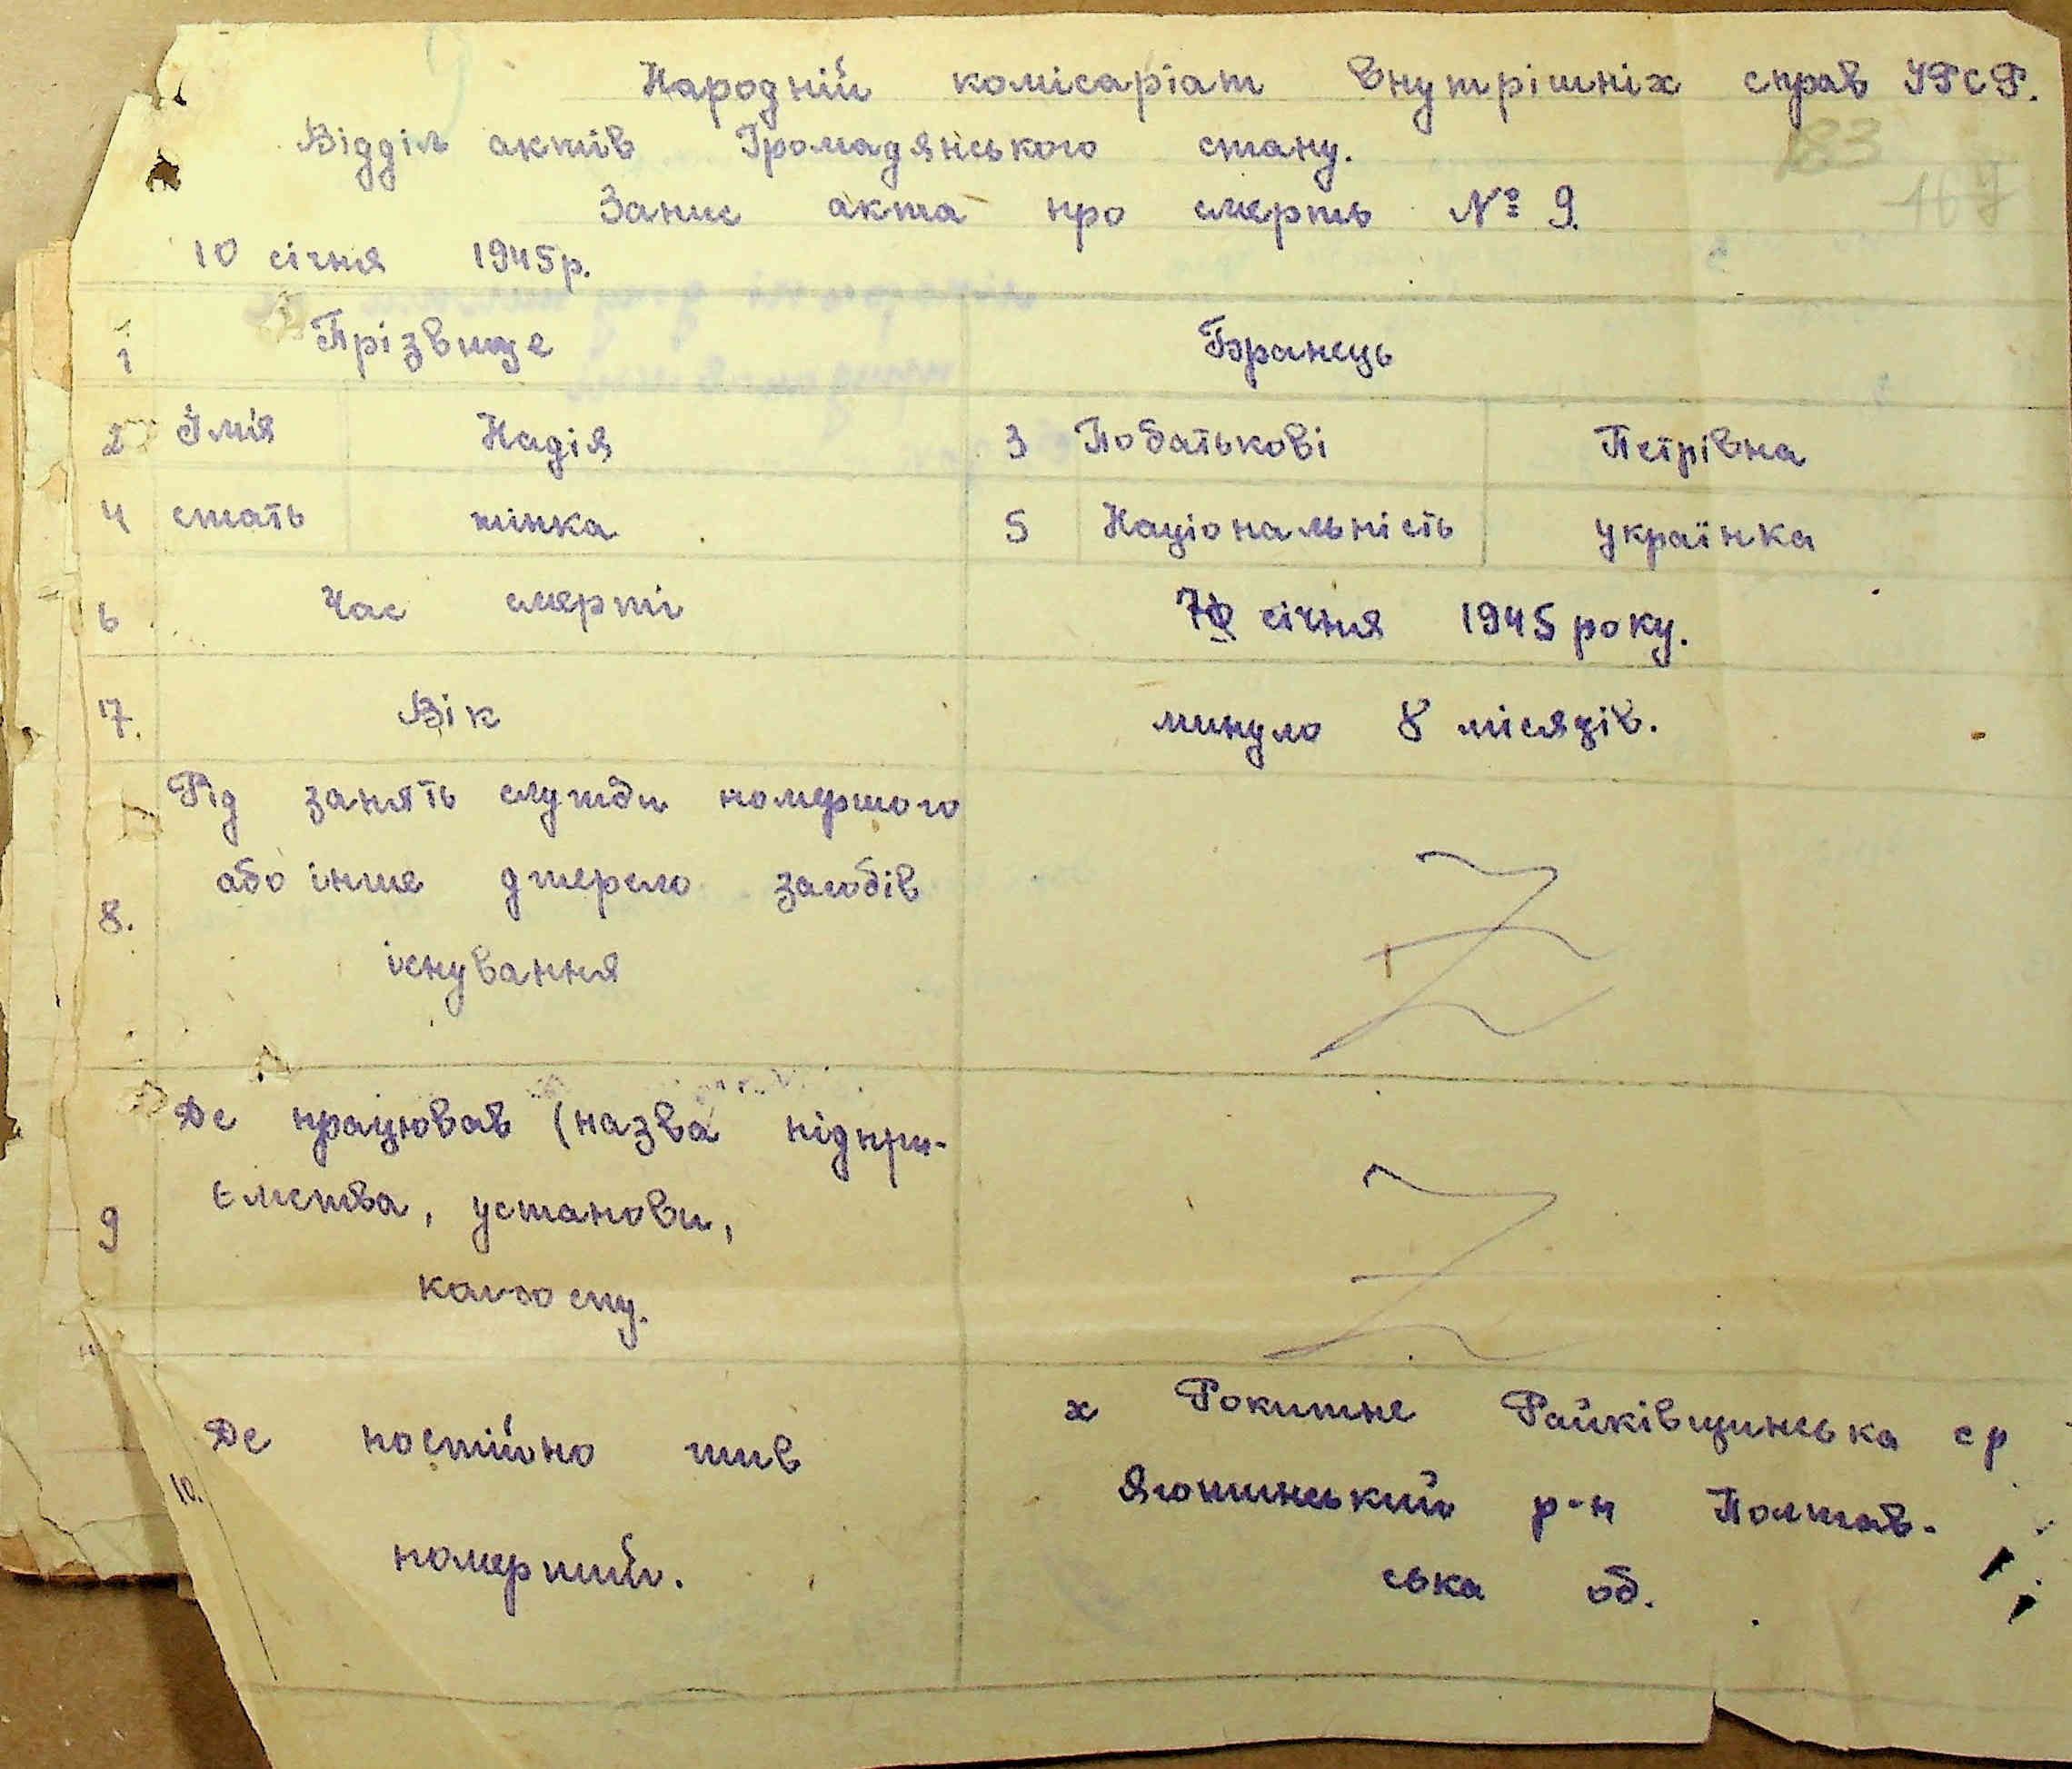 Народній комісаріат Внутрішніх справ УРСР.
183
Відділ актів Громадянського стану.
167
Запис акта про смерть № 9.
10 січня 1945р.
1 Прізвище Бранець
2 Імія Надія 3 Побатькові Петрівна
4 стать жінка 5 Національність українка
6 Час смерті 7 січня 1945 року.
7. Вік минуло 8 місяців.
Рід занять служби помершого
або інше джерело засобів
8.
існування
Де працював (назва підпри-
ємства, установи,
9
колхоспу.
х Рокитне Райківщинська ср
Де постійно жив
Ягонинський р-н Полтав-
10.
померший.
ська об.